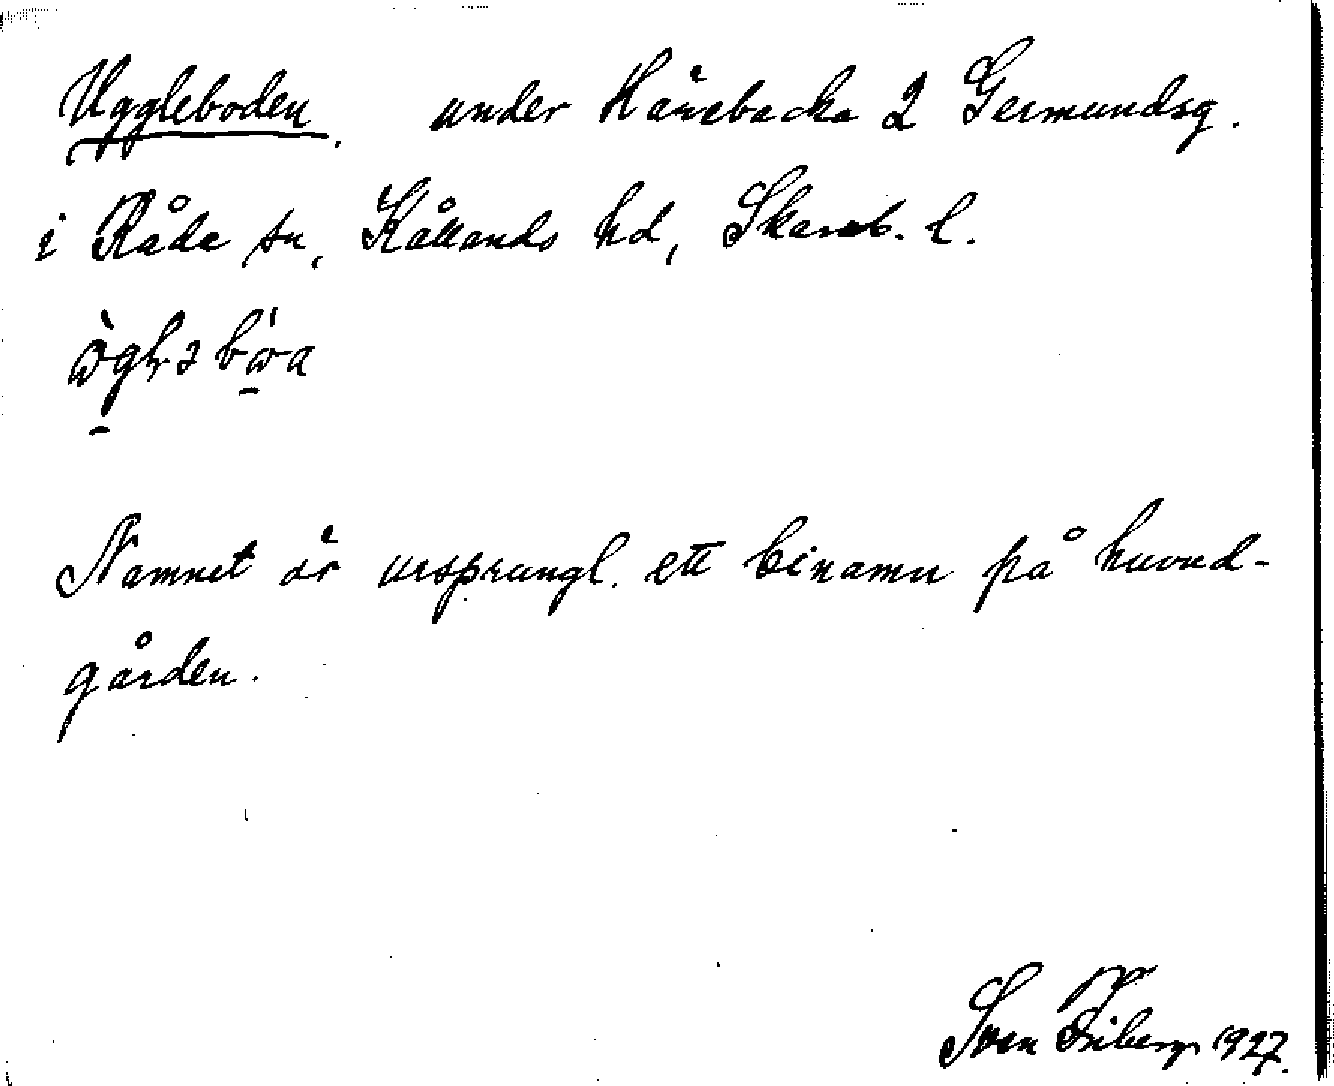 Uggleboden. under Håvebacka 2 Germundsg.
i Råda sn, Kållands hd, Skarab. l.
Namnet är ursprungl. ett binamn på huvud-
gården.
Sven Friberg 1927.